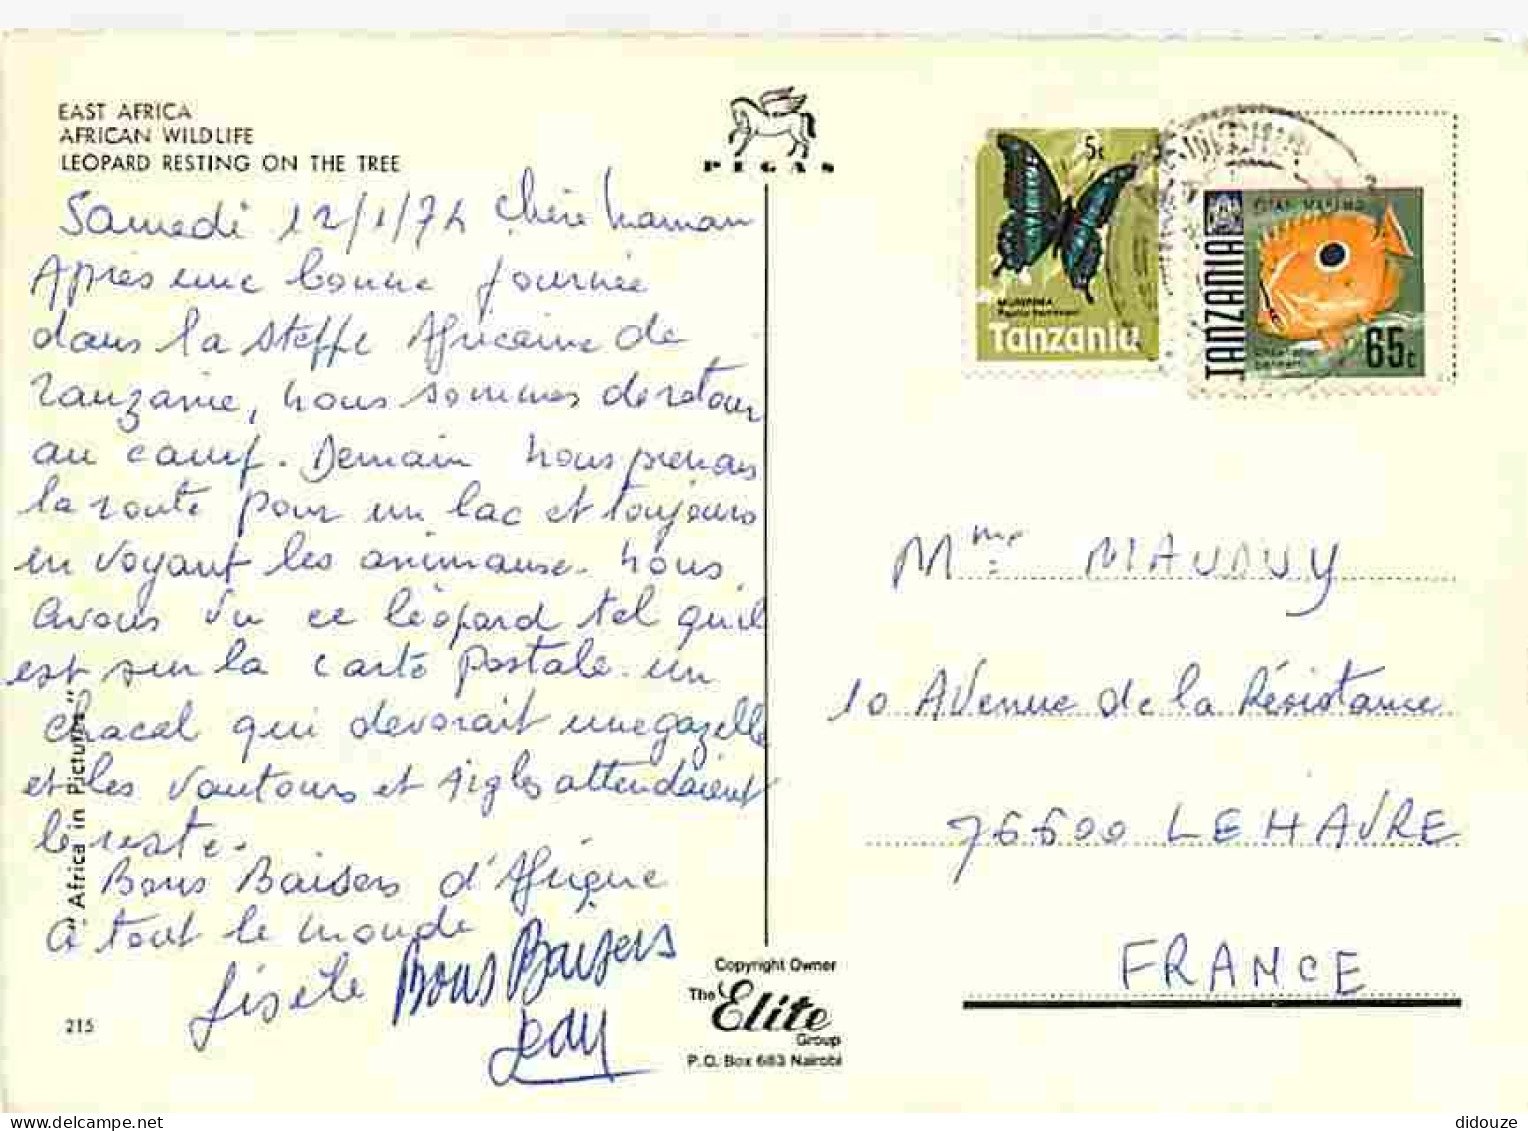 EAST AFRICA
AFRICAN WILDLIFE
LEOPARD RESTING ON THE TREE
PEGAS
Samedi 12/1/74 Chère Maman
Après une bonne journée
dans la steppe Africaine de
Tanzanie, nous sommes de retour
au camp. Demain nous prenons
la route pour un lac et toujours
en voyant les animaux. nous
avons vu ce léopard tel qu'il
est sur la carte postale. un
chacal qui devorait une gazelle
et les vautours et Aigles attendaient
le reste.
Bons Baisers d'Afrique
à tout le monde
Gisèle Bons Baisers
Jean
215
"Africa in Pictures"
Copyright Owner
The Elite
Group
P.O. Box 683 Nairobi
5c
Tanzania
TANZANIA
65c
Mme MAUDUY
10 Avenue de la Résistance
76600 LE HAVRE
FRANCE
didouze